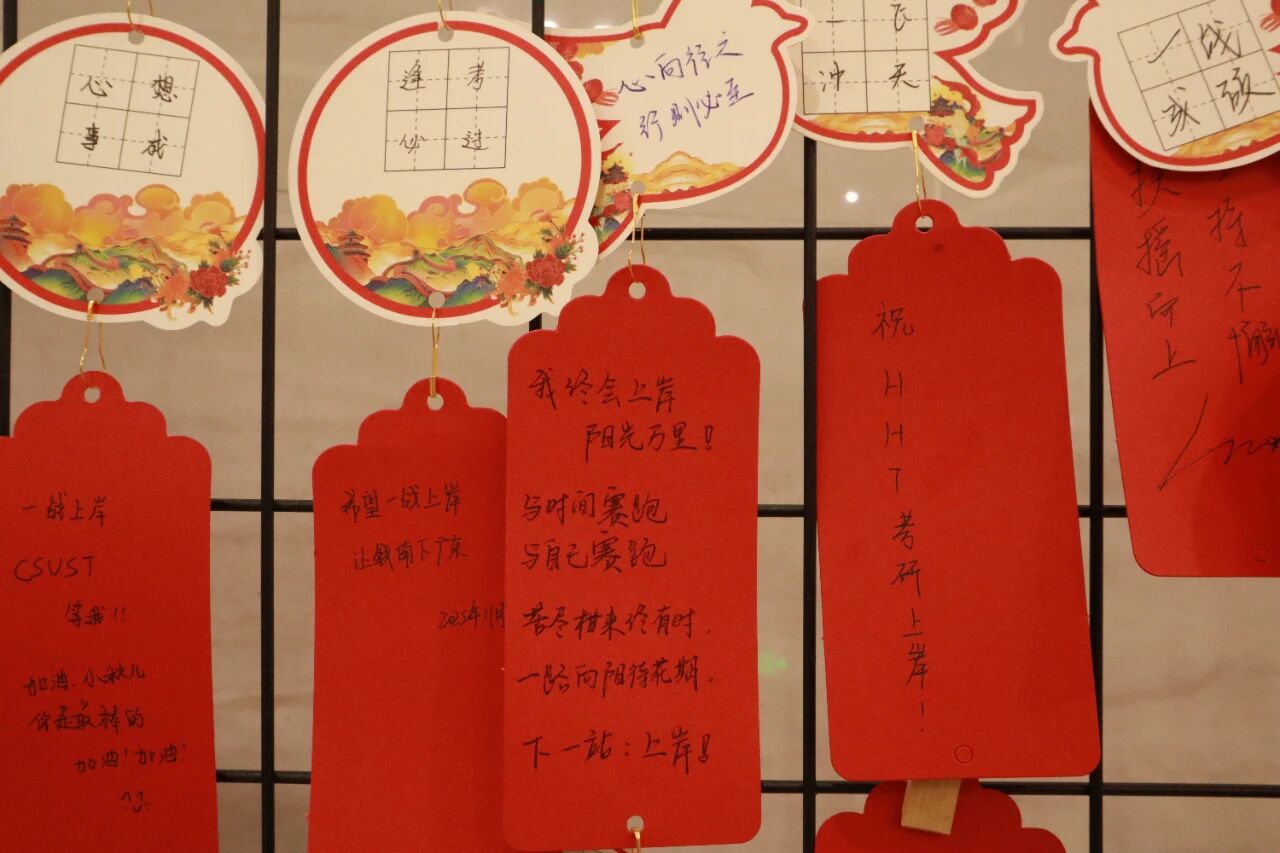 心想
事成
一战上岸
CSUST
等我!!
加油、小秋儿
你是最棒的
加油!加油!
逢考
必过
希望一战上岸
让我南下广东
2025年11月
心向往之
行则必至
我终会上岸
阳光万里!
与时间赛跑
与自己赛跑
苦尽柑来终有时.
一路向阳待花期.
下一站:上岸!
一飞
冲天
祝
H
H
T
考
研
上
岸
!
一战
成硕
持不懈
扶摇而上